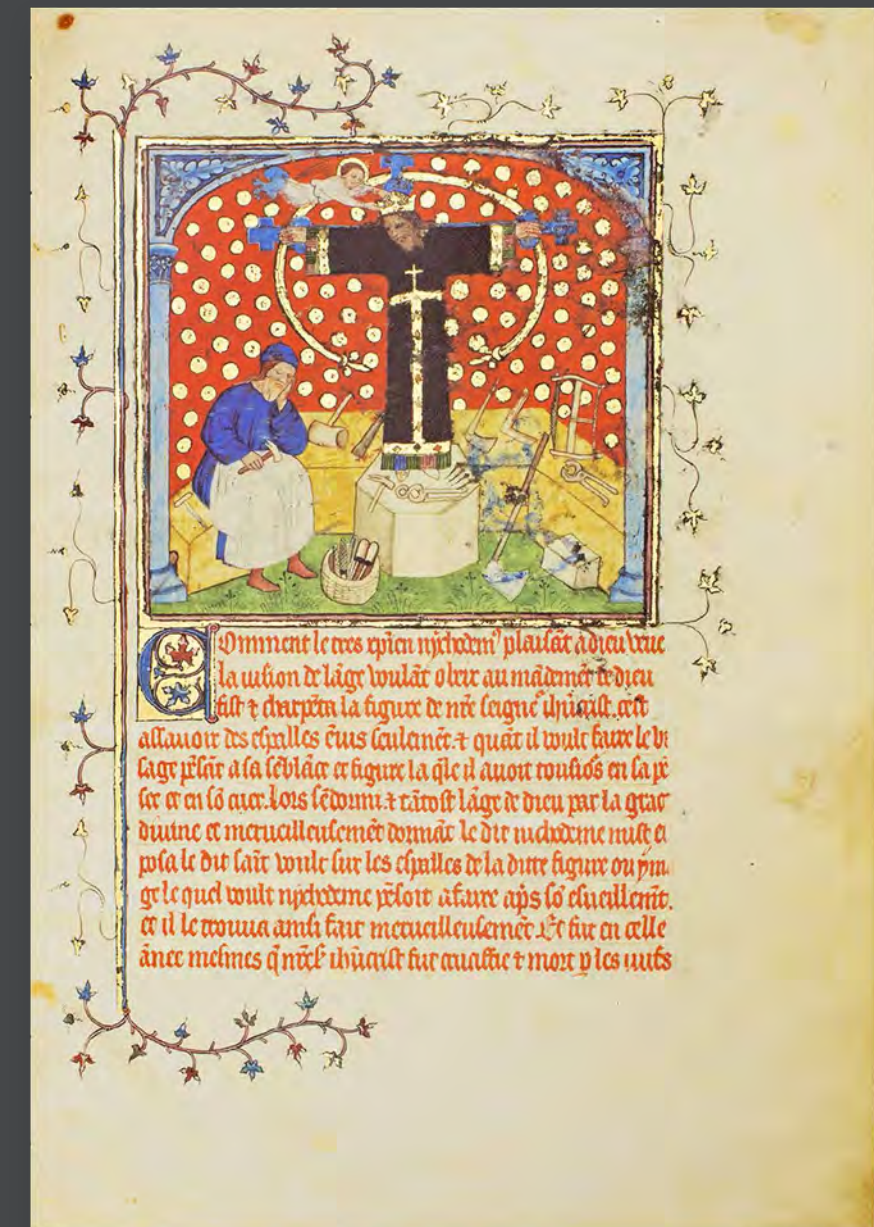 Comment le tres xpien nychodem⁹ plaisāt a dieu veue
la uision de lāge voulāt obeir au mādemēt de dieu
fist ⁊ charpēta la figure de nrē seigne᷑ ihūcrist. cest
assauoir des espalles ēuis seulemēt. ⁊ quāt il voult faire le vi
sage pēsāt a sa sēblāce et figure la q̄le il auoit tousiōs en sa pē
see et en sō cuer. lors sēdormi. ⁊ tātost lāge de dieu par la grac
diuine et merueilleusemēt dormāt le dit nichodeme mist et
posa le dit saīt voult sur les espalles de la ditte figure ou ym
ge le quel voult nychodeme pēsoit a faire ap̄s sō esueillemēt.
et il le trouua ainsi fait merueilleusemēt. Et fut en celle
ānee mesmes q̄ ihūcrist fut crucifie ⁊ mort p les iuifs